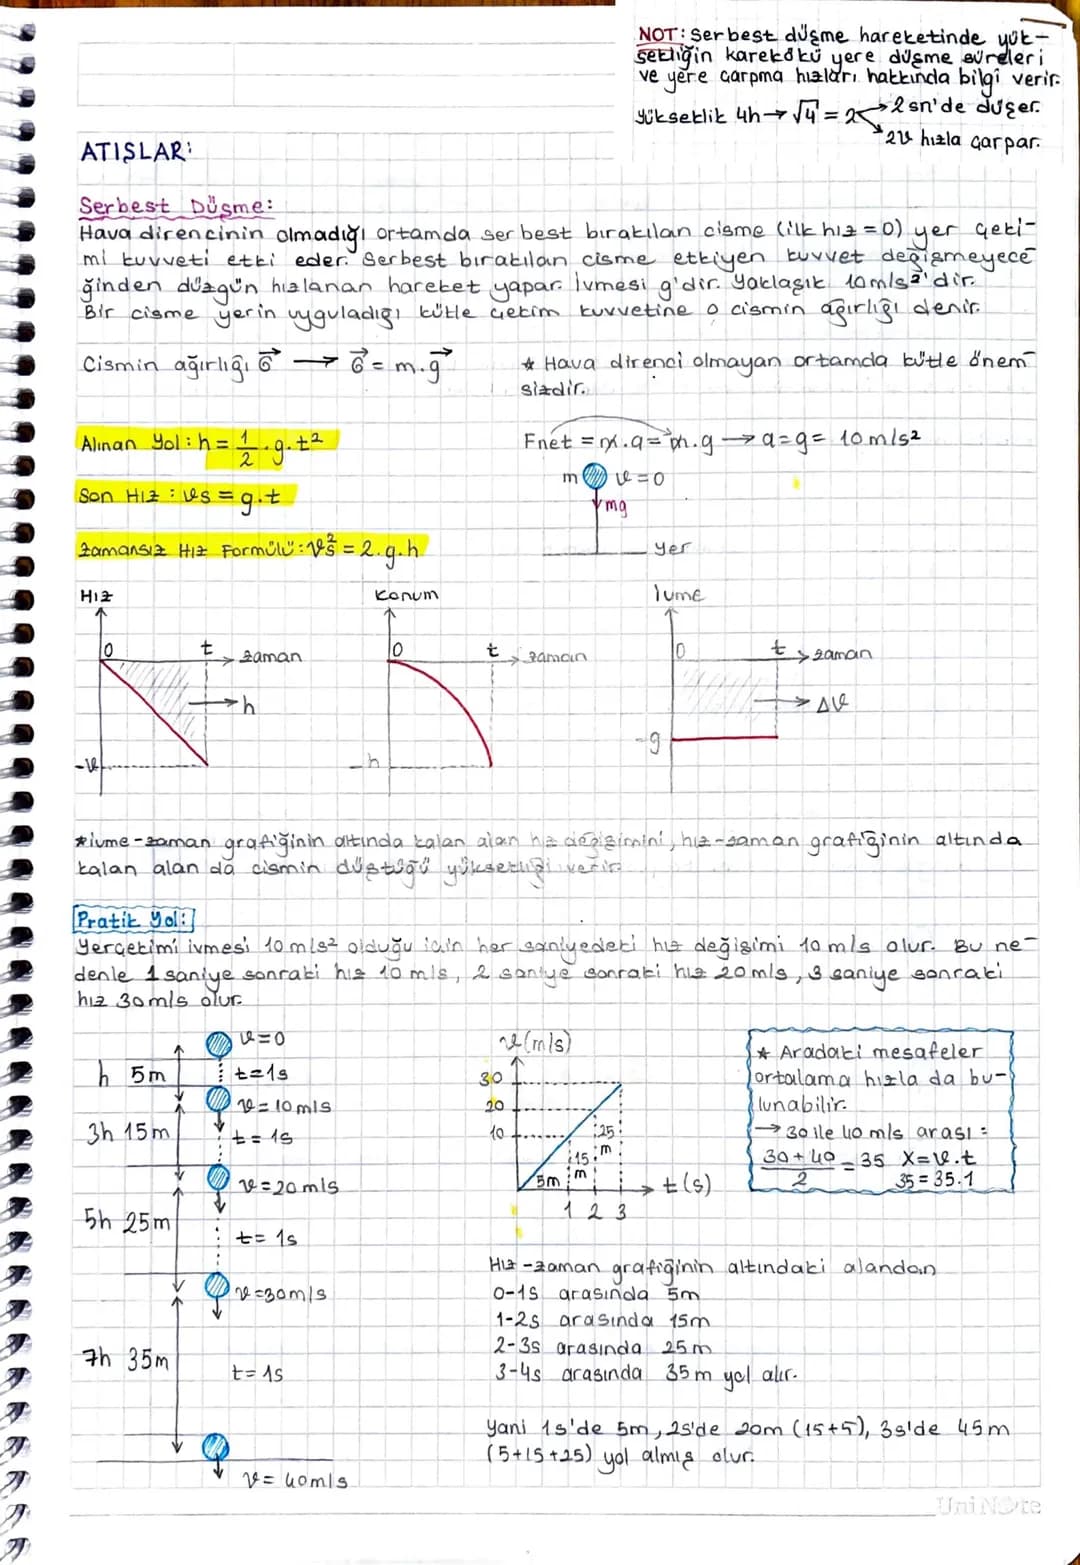 NOT: Serbest düşme hareketinde yük-
sekliğin karekökü yere düşme süreleri
ve yere çarpma hızları hakkında bilgi verir.
Yükseklik 4h → √4 = 2 → 2 sn'de düşer.
→ 2v hızla çarpar.
ATIŞLAR:
Serbest Düşme:
Hava direncinin olmadığı ortamda serbest bırakılan cisme (ilk hız = 0) yer çeki-
mi kuvveti etki eder. Serbest bırakılan cisme etkiyen kuvvet değişmeyece
ğinden düzgün hızlanan hareket yapar. İvmesi g'dir. Yaklaşık 10 m/s²'dir.
Bir cisme yerin uyguladığı kütle çekim kuvvetine o cismin ağırlığı denir.
Cismin ağırlığı G → G = m.g
* Hava direnci olmayan ortamda kütle önem
sizdir.
Alınan Yol: h = 1/2 . g. t²
Fnet = m.a = m.g → a = g = 10 m/s²
m v = 0
Son Hız : vs = g.t
mg
Zamansız Hız Formülü: vs² = 2.g.h
yer
Hız Konum İvme
0 t zaman 0 t zaman 0 t zaman
h Δv
-v -h -g
*ivme-zaman grafiğinin altında kalan alan hız değişimini, hız-zaman grafiğinin altında
kalan alan da cismin düştüğü yüksekliği verir.
Pratik Yol:
Yerçekimi ivmesi 10 m/s² olduğu için her saniyedeki hız değişimi 10 m/s olur. Bu ne-
denle 1 saniye sonraki hız 10 m/s, 2 saniye sonraki hız 20 m/s, 3 saniye sonraki
hız 30 m/s olur.
v = 0
h 5m t = 1s
v = 10 m/s
3h 15m t = 1s
v = 20 m/s
5h 25m t = 1s
v = 30 m/s
7h 35m t = 1s
v = 40 m/s
v (m/s)
30
20
10
5m 15 m 25 m
t (s)
1 2 3
* Aradaki mesafeler
ortalama hızla da bu-
lunabilir.
→ 30 ile 40 m/s arası =
30 + 40 / 2 = 35 X = v.t
35 = 35.1
Hız-zaman grafiğinin altındaki alandan
0-1s arasında 5m
1-2s arasında 15m
2-3s arasında 25m
3-4s arasında 35m yol alır.
Yani 1s'de 5m, 2s'de 20m (15+5), 3s'de 45m
(5+15+25) yol almış olur.
UniNote